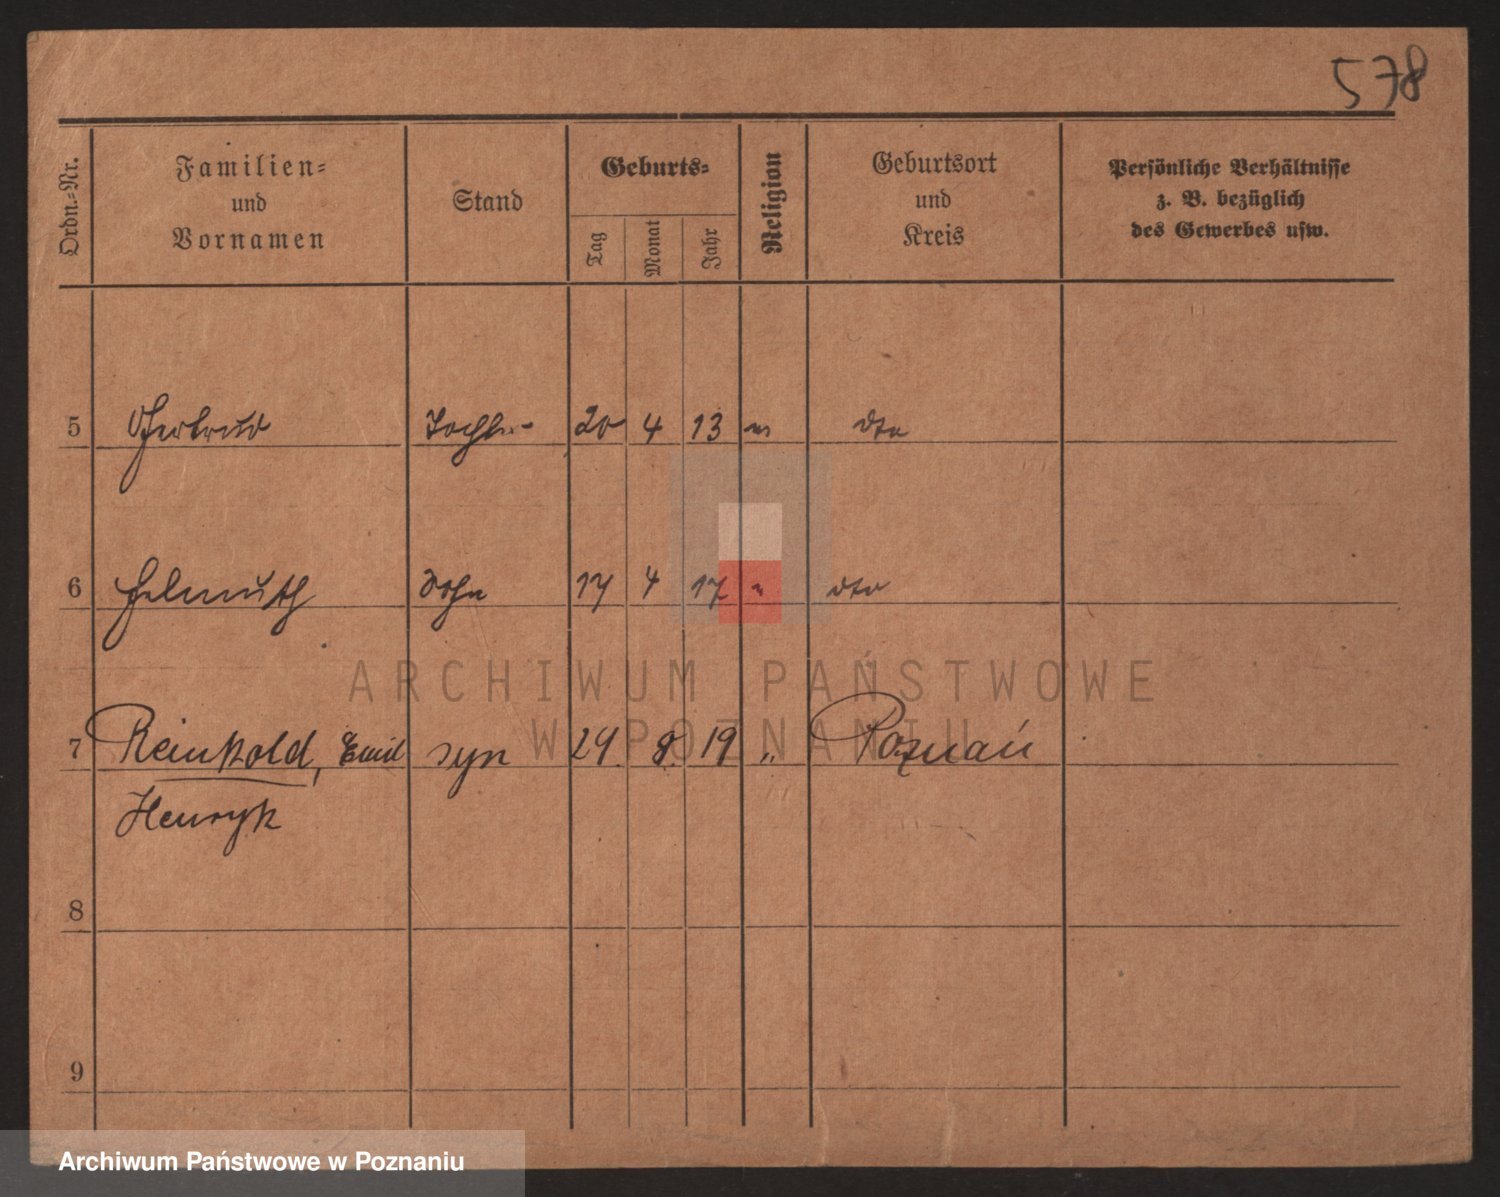 578
Ordn.-Nr.
Familien-
und
Vornamen
Stand
Geburts-
Tag
Monat
Jahr
Religion
Geburtsort
und
Kreis
Persönliche Verhältnisse
z. B. bezüglich
des Gewerbes usw.
5 Gertrud Tochter 20 4 13 " dto
6 Helmuth Sohn 4 17 " dto
ARCHIWUM PAŃSTWOWE
W POZNANIU
7 Reinhold, Emil syn 24. 8. 19 " Poznań
Henryk
8
9
Archiwum Państwowe w Poznaniu